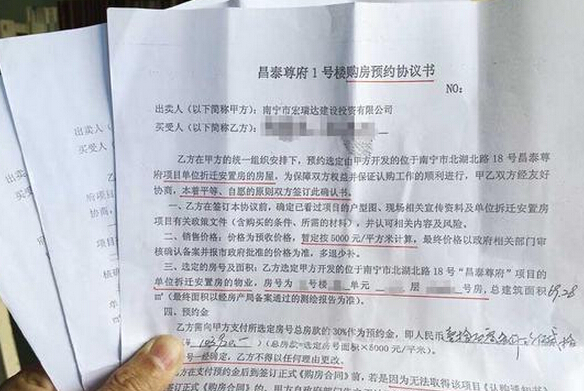 昌泰尊府1号楼购房预约协议书
NO:
出卖人（以下简称甲方）：南宁市宏瑞达建设投资有限公司
买受人（以下简称乙方）：
乙方在甲方的统一组织安排下，预约选定由甲方开发的位于南宁市北湖北路18号昌泰尊
府项目单位拆迁安置房的房屋，为保障双方权益并保证认购工作的顺利进行，甲乙双方经友好
协商，本着平等、自愿的原则双方签订此确认书。
一、乙方在签订本协议前，确定已看过项目的户型图、现场相关宣传资料及单位拆迁安置房
项目有关政策文件（含购买的条件、所需的材料），并认可相关内容及风险。
二、销售价格：价格为预收价格，暂定按5000元/平方米计算，最终价格以政府相关部门审
核确认备案并报市政府批准的价格为准，多退少补。
三、选定的房号及面积：乙方选定甲方开发的位于南宁市北湖北路18号“昌泰尊府”项目的
单位拆迁安置房的物业，房号为 号楼 单元 层 号房，总建筑面积
㎡（最终面积以经房产局备案通过的测绘报告为准）。
四、预约金
乙方需向甲方支付所选定房号总房款的30%作为预约金，即人民币
（总房款=选定房号面积×5000元/㎡）
号一经确定，乙方不得以任何理由更改。
付预约金后到签订正式《购房合同》前，若是因为无法取得该项目《认购通知
出卖
买受
府项
协商
核确